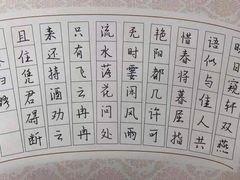 窥轩双燕
语似与佳人共
惜春将暮屈指
艳阳都几许可
无时霎闲风雨
流水落花问处
只有飞云冉冉
来还持酒劝云
且住凭君碍断
归路